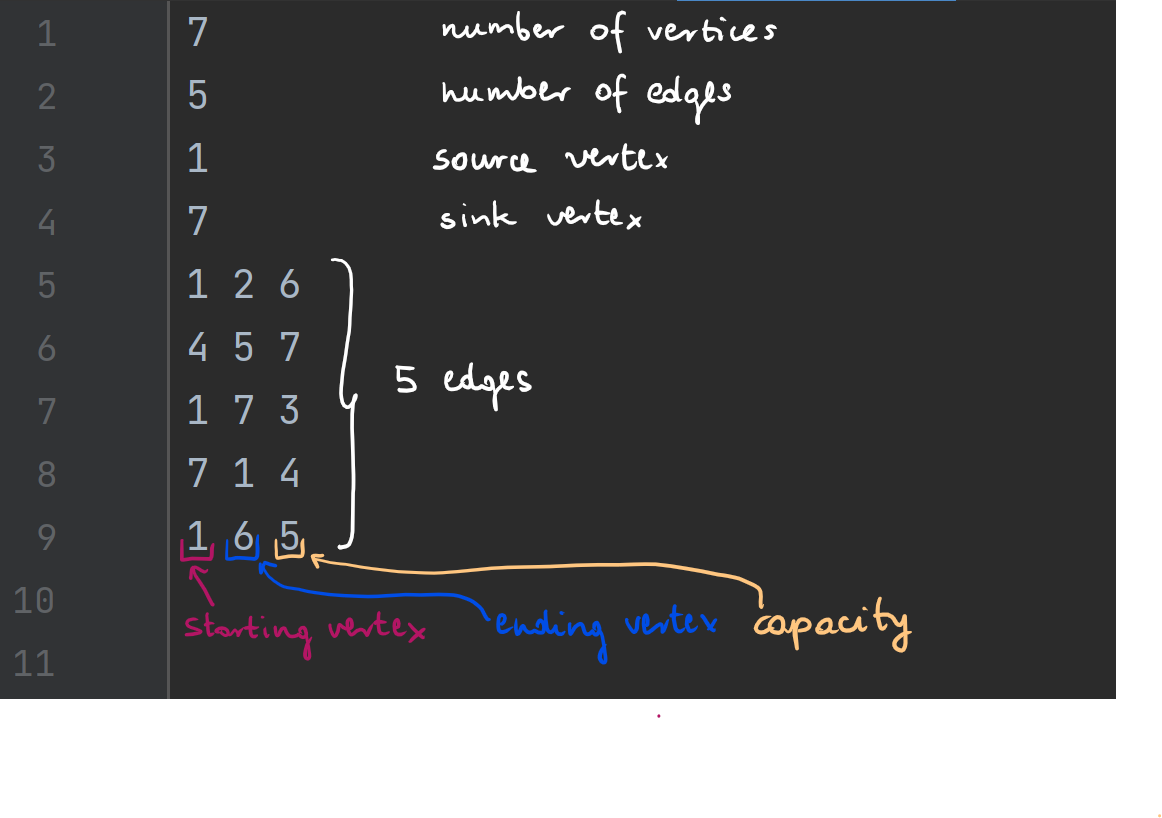 1 7 number of vertices
2 5 number of edges
3 1 source vertex
4 7 sink vertex
5 1 2 6
6 4 5 7
5 edges
7 1 7 3
8 7 1 4
9 1 6 5
10
starting vertex ending vertex capacity
11